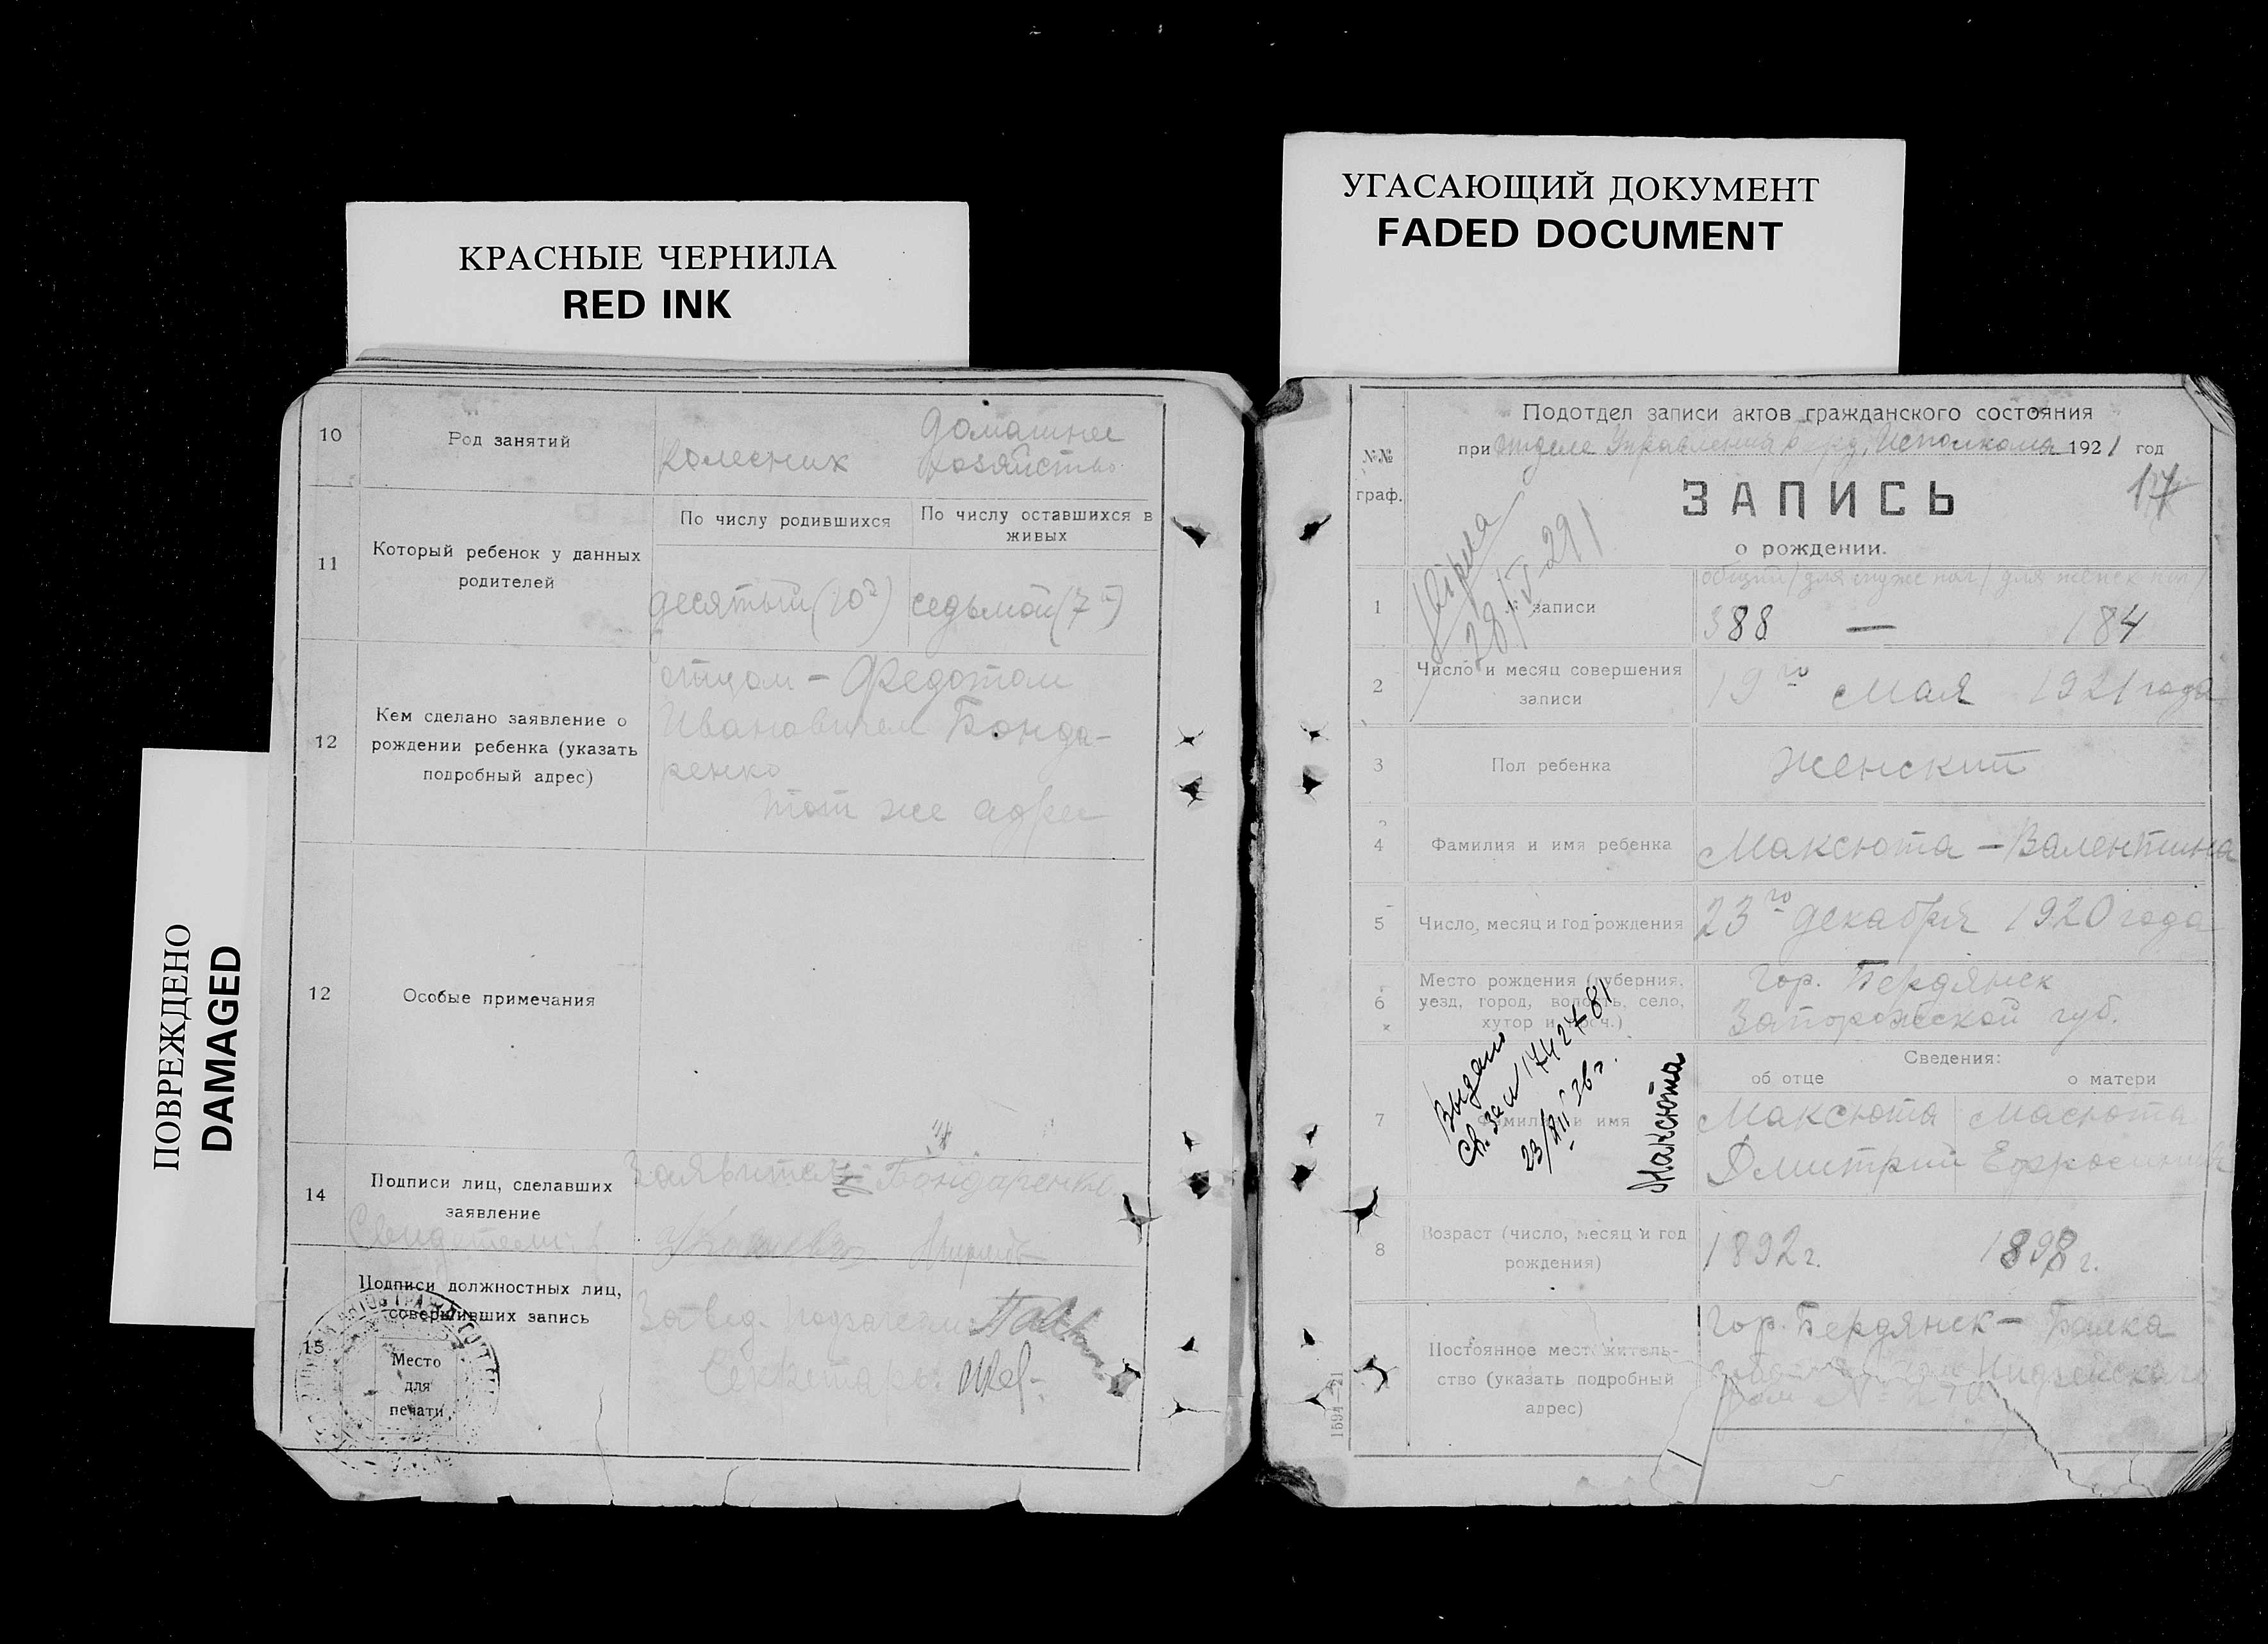 КРАСНЫЕ ЧЕРНИЛА
RED INK
УГАСАЮЩИЙ ДОКУМЕНТ
FADED DOCUMENT
ПОВРЕЖДЕНО
DAMAGED
10
Род занятий
колесник
домашнее
хозяйство
11
Который ребенок у данных
родителей
По числу родившихся
По числу оставшихся в
живых
десятый (10й)
седьмой (7й)
12
Кем сделано заявление о
рождении ребенка (указать
подробный адрес)
отцом - Федотом
Ивановичем Бонда-
ренко
тот же адрес
12
Особые примечания
14
Подписи лиц, сделавших
заявление
Заявитель Бондаренко
Свидетели
15
Подписи должностных лиц,
совершивших запись
Завед. подотделом
Секретарь
Место
для
печати
№№
граф.
Подотдел записи актов гражданского состояния
при отделе Управления Исполкома 1921 год
17
ЗАПИСЬ
о рождении.
1
№ записи
общий / для мужс пол / для женск пол /
388 — 184
2
Число и месяц совершения
записи
19го мая 1921 года
3
Пол ребенка
Женский
4
Фамилия и имя ребенка
Максюта - Валентина
5
Число, месяц и год рождения
23го декабря 1920 года
6
Место рождения (губерния,
уезд, город, волость, село,
хутор и проч.)
гор. Бердянск
Запорожской губ.
Сведения:
об отце
о матери
7
Фамилия и имя
Максюта
Дмитрий
Масюта
Ефросиния
Выдано
23/XII 26 г.
Максюта
8
Возраст (число, месяц и год
рождения)
1892 г.
1898 г.
Постоянное место житель-
ство (указать подробный
адрес)
гор. Бердянск - Балка
дом №
1594—21